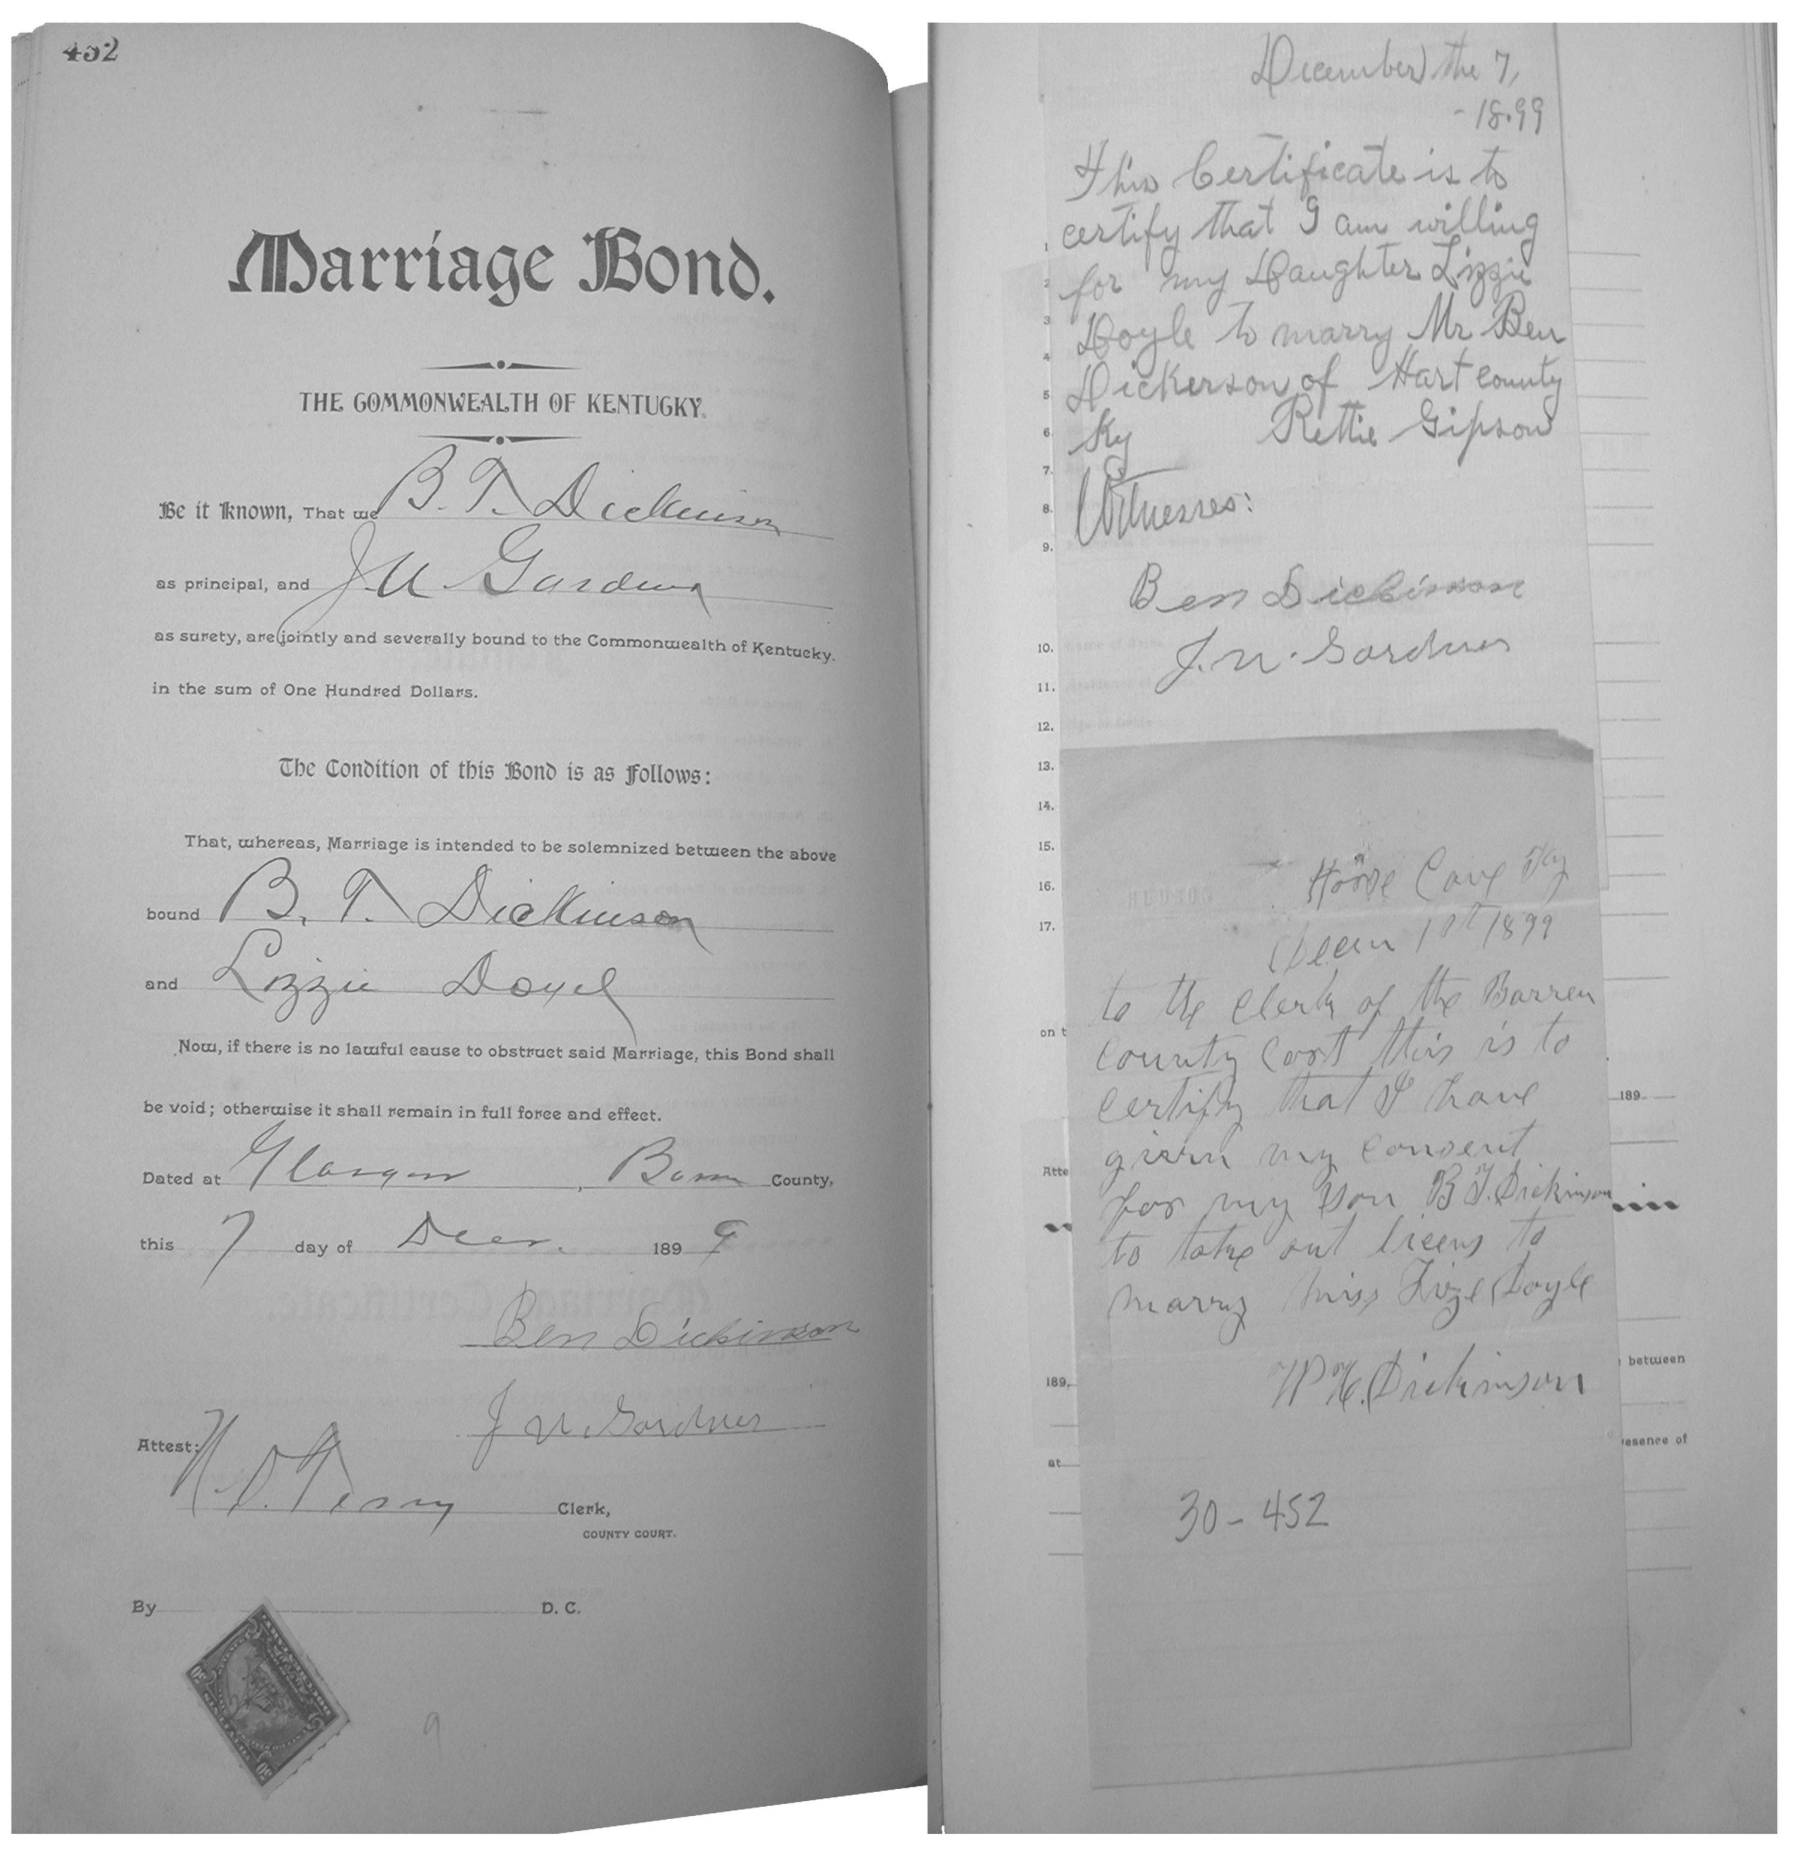 452
Marriage Bond.
THE COMMONWEALTH OF KENTUCKY.
Be it known, That we B. T. Dickinson
as principal, and J. N. Gardner
as surety, are jointly and severally bound to the Commonwealth of Kentucky.
in the sum of One Hundred Dollars.
The Condition of this Bond is as Follows:
That, whereas, Marriage is intended to be solemnized between the above
bound B. T. Dickinson
and Lizzie Doyel
Now, if there is no lawful cause to obstruct said Marriage, this Bond shall
be void; otherwise it shall remain in full force and effect.
Dated at Glasgow, Barren County,
this 7 day of Decr. 1899
Ben Dickinson
J N. Gardner
Attest:
Clerk,
COUNTY COURT.
By D. C.
9
December the 7,
-18.99
This Certificate is to
certify that I am willing
for my Daughter Lizzie
Doyle to marry Mr Ben
Dickerson of Hart county
Ky Rettie Gipson
Witnesses:
Ben Dickinson
J. N. Gardner
1
2
3
4
5
6.
7.
8.
9.
10.
11.
12.
13.
14.
15.
16.
17.
Horse Cave Ky
1899
to the Clerk of the Barren
County Cort this is to
certify that I have
givin my consent
for my son B T. Dickinson
to take out licens to
marry miss Lizе Doyle
W H. Dickinson
30-452
on t
189
Atte
189,
between
at
resence of